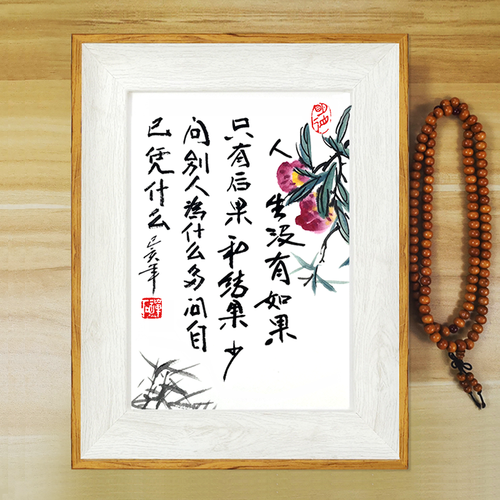 人生没有如果
只有后果和结果少
问别人為什么多问自
己凭什么
己亥年